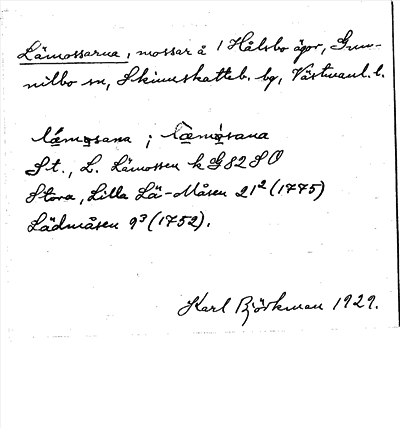 Lämossarna, mossar å 1 Hålsbo ägor, Gun-
nilbo sn, Skinnskatteb. bg, Västmanl. l.
lǽmǫsana ; lǽmǫ́sana
St., L. Lämossen k G82SO
Stora, Lilla Lä-Måsen 21² (1775)
Lädmåsen 9³ (1752).
Karl Björkman 1929.